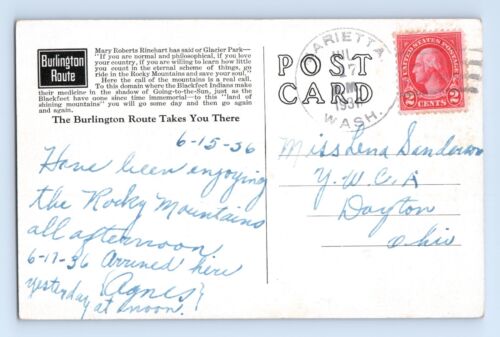 Burlington
Route
Mary Roberts Rinehart has said or Glacier Park—
"If you are normal and philosophical, if you love
your country, if you are willing to learn how little
you count in the eternal scheme of things, go
ride in the Rocky Mountains and save your soul."
Here the call of the mountains is a real call.
To this domain where the Blackfeet Indians make
their medicine in the shadow of Going-to-the-Sun, just as the
Blackfeet have gone since time immemorial—to this "land of
shining mountains" you will go some day and then go again
and again.
The Burlington Route Takes You There
POST
CARD
MARIETTA
17
WASH.
UNITED STATES POSTAGE
2 CENTS 2
6-15-36
Have been enjoying
the Rocky Mountains
all afternoon
6-17-36 Arrived here
yesterday Agnes
at noon.
Miss Lena Sanderson
Y.W.C.A
Dayton
Ohio